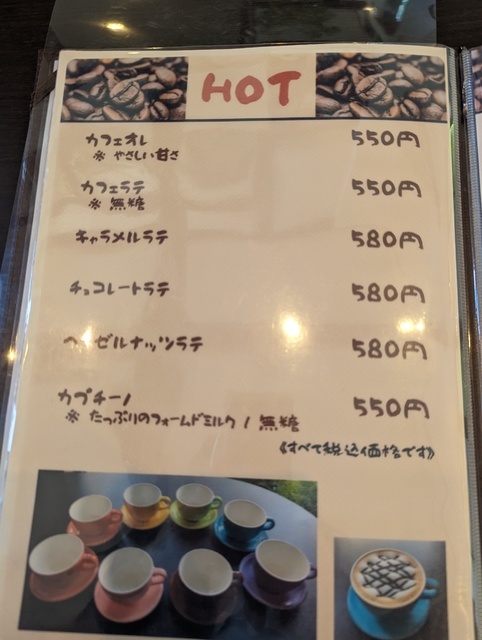 HOT
カフェオレ 550円
※ やさしい甘さ
カフェラテ 550円
※ 無糖
キャラメルラテ 580円
チョコレートラテ 580円
ヘーゼルナッツラテ 580円
カプチーノ 550円
※ たっぷりのフォームドミルク / 無糖
《すべて税込価格です》